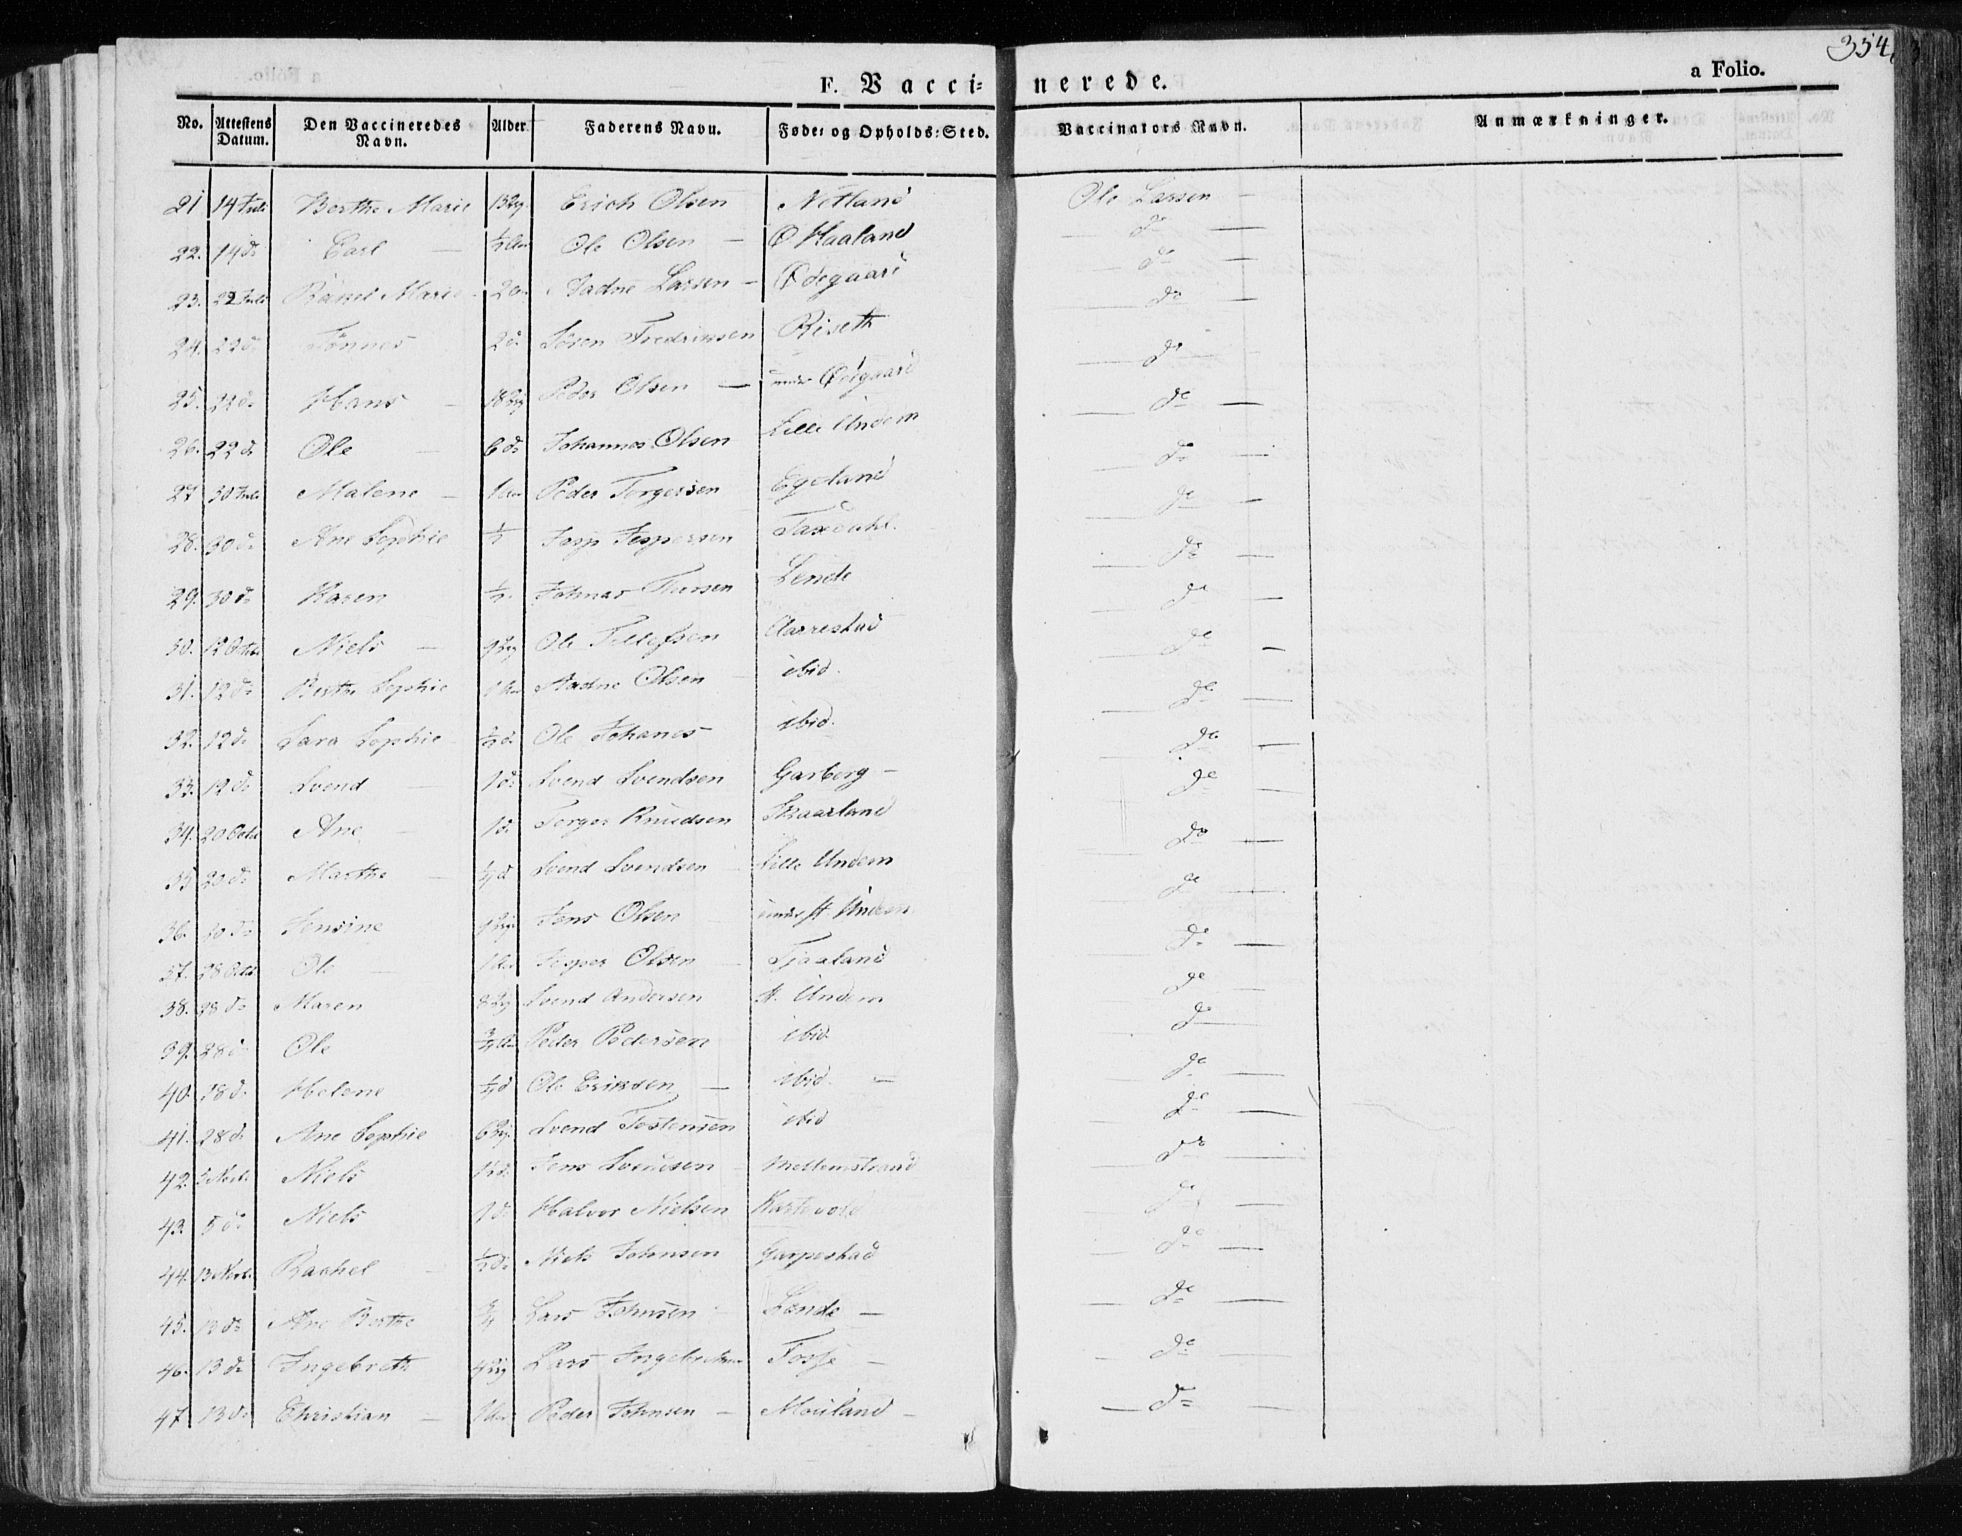 354
F. Vacci= nerede. a Folio.
No. Attestens Datum. Den Vaccineredes Navn. Alder. Faderens Navn. Føde= og Opholds=Sted. Vaccinators Navn. Anmærkninger.
21 14 Juli Berthe Marie Erich Olsen Netland Ole Larsen
22. 14 do Carl Ole Olsen Ø Haaland do
23. 22 Juli Marie Aadne Larsen Ødegaard do
24. 22 do Tønnes 2 do Sören Fredriksen Riseth do
25. 22 do Hans Peder Olsen under Ødegaard do
26. 22 do Ole 6 do Johannes Olsen Lille Undem do
27 30 Juli Malene Peder Torgersen Egeland do
28. 30 do Ane Sophie ½ Jesp Jespersen Taxdahl do
29. 30 do Karen ½ Johnas Lende do
30. 12 Octob Niels Ole Tollefsen Aarrestad do
31. 12 do Berthe Sophie Aadne Olsen ibid. do
32. 12 do Sara Sophie ½ do Ole Johanes ibid. do
33. 12 do Svend 1 do Svend Svendsen Garberg do
34. 20 Octo Ane 1 do Torger Knudsen Skaarland do
35 20 do Marthe Svend Svendsen Lille Undem do
36. 20 do Jensine Jens Olsen under st. Undem do
37. 28 Octo Ole Jesper Olsen Tjaaland do
38. 28 do Maren Svend Andersen st. Undem do
39. 28 do Ole Peder Pedersen ibid. do
40. 28 do Helene Ole Eriksen ibid. do
41. 28 do Ane Sophie Svend Tostensen ibid do
42. Niels Jens Svendsen Mellemstrand do
43. 5 do Niels Halvor Nielsen Kartevold do
44. 13 Novb. Rachel ½ do Niels Johnsen Garpestad do
45. 13 do Ane Berthe ¾ Lars Johnsen Lende do
46. 13 do Ingebreth Lars Ingebrethsen Fosse do
47 13 do Christian Peder Johnsen Mouland do